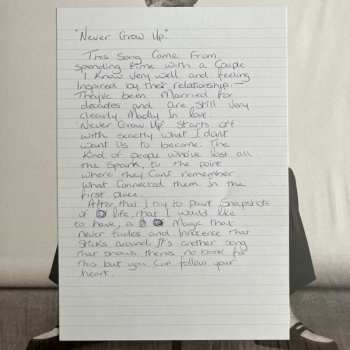 "Never Grow Up"
This Song Came From
spending time with a Couple
I know very well and feeling
Inspired by their relationship.
They've been Married for
decades and are still very
clearly Madly In love.
'Never Grow Up' Starts off
with exactly what I dont
want Us to become. The
Kind of people whove lost all
the spark, to the point
where they Cant remember
what Connected them in the
first place.
After that, I try to paint Snapshots
of life, that I would like
to have, a Magic that
never fades and Innocence that
Sticks around. It's another song
that shows theres no rule for
this but you Can follow your
heart.